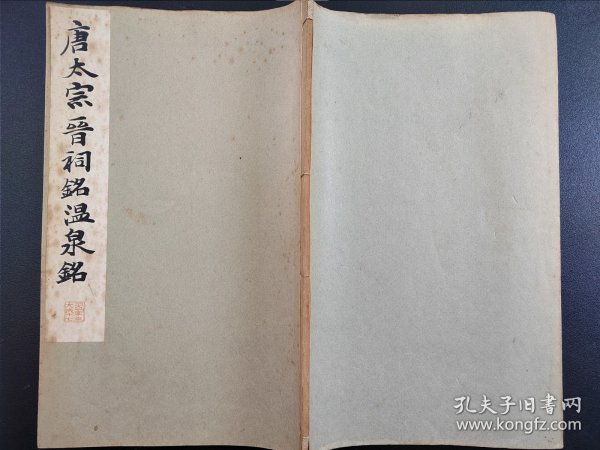 唐太宗晋祠銘温泉銘
孔夫子旧書网
www.kongfz.com